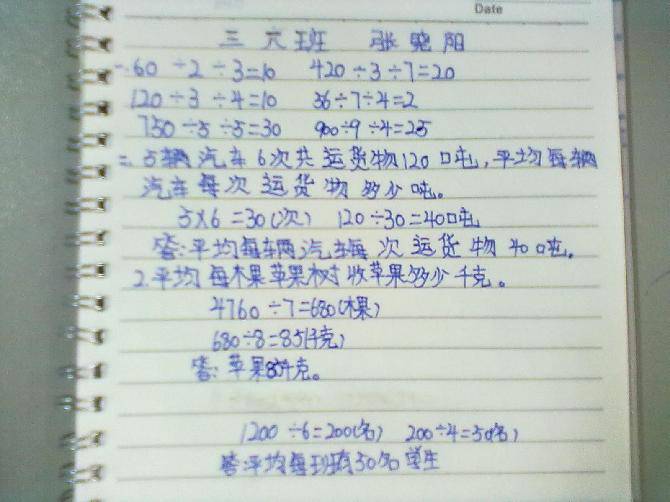 Date
三 六班 张晓阳
一.60÷2÷3=10 420÷3÷7=20
120÷3÷4=10 56÷7÷4=2
750÷5÷5=30 900÷9÷4=25
二.5辆汽车6次共运货物120吨,平均每辆
汽车每次运货物多少吨。
5×6=30(次) 120÷30=40吨
答:平均每辆汽车每次运货物40吨。
2.平均每棵苹果树收苹果多少千克。
4760÷7=680(棵)
680÷8=85(千克)
答:苹果85千克。
1200÷6=200(名) 200÷4=50(名)
答:平均每班有50名学生